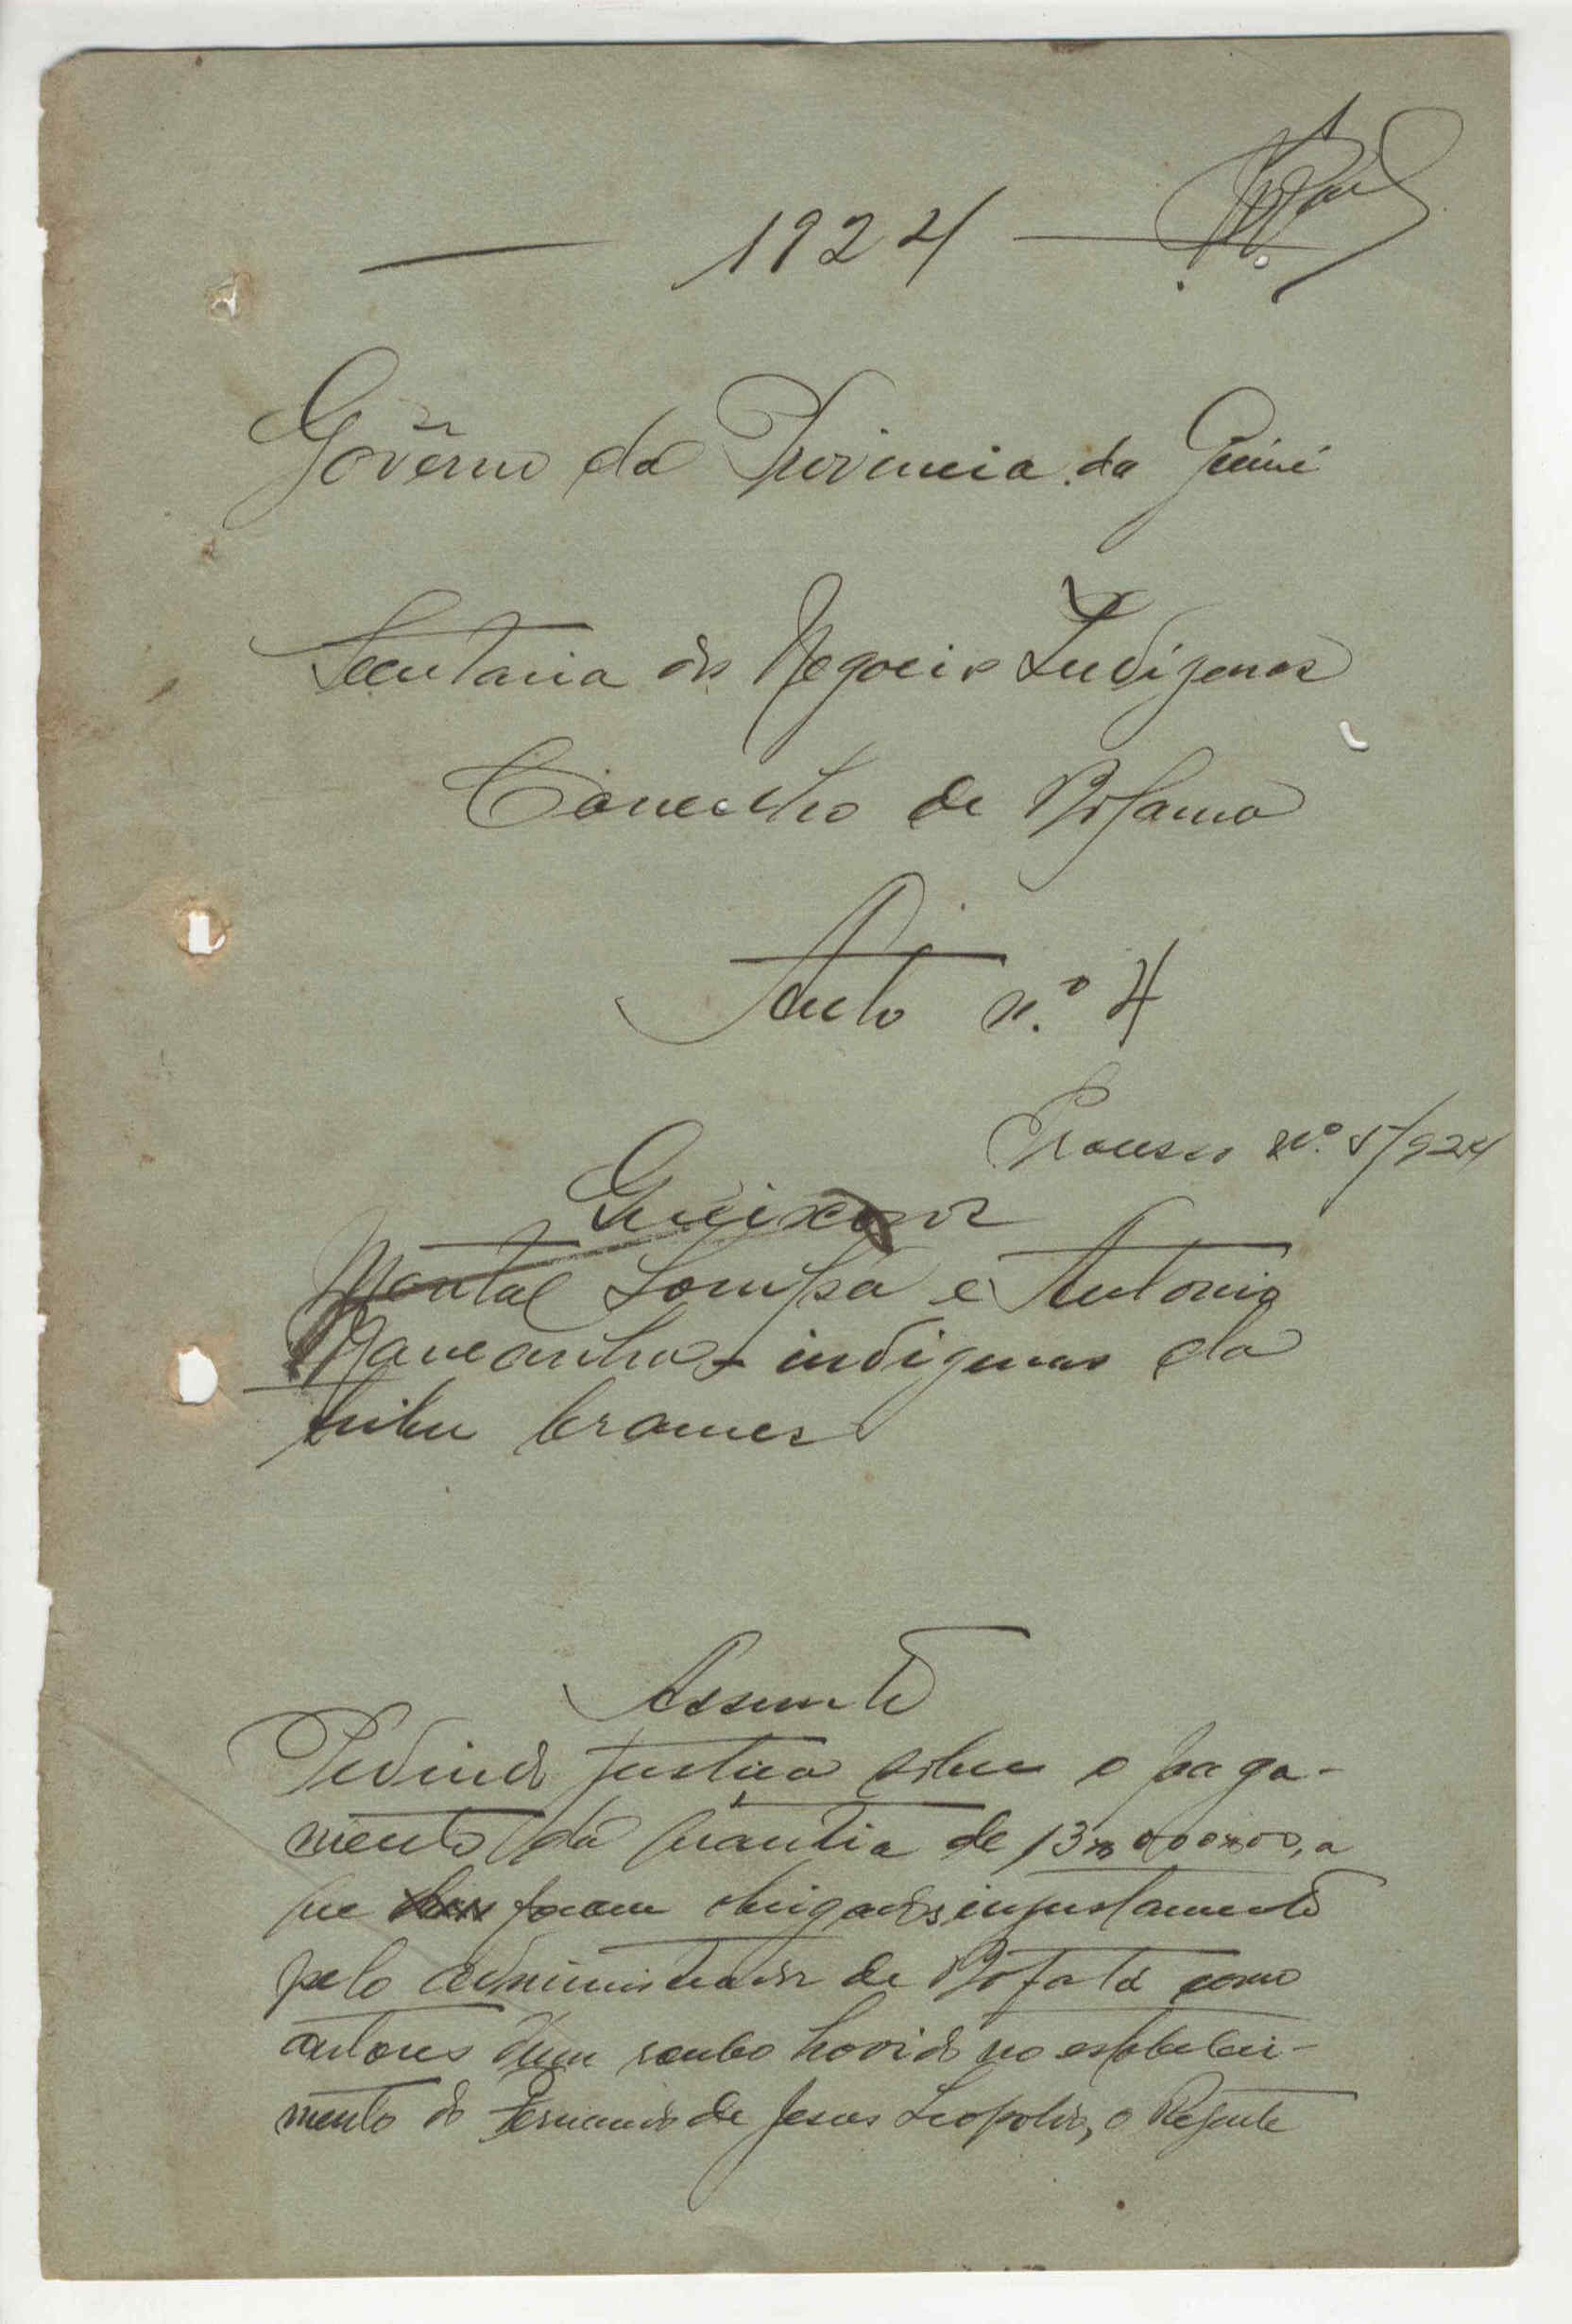 1924
Govêrno da Provincia da Guiné
Secretaria dos Negocios Indígenas
Concelho de Bolama
Auto n.º 4
Processo n.º 5/924
Queixosos
Mental Lompsa e Antonio
Mancanha, indigenas da
tribu brames
Assunto
Pedindo justiça sobre o paga-
mento da quantia de 13
que foram obrigados injustamente
pelo administrador de Bafatá como
autores dum roubo havido no estabeleci-
mento do Fernando de Jesus Leopoldo, o Regente